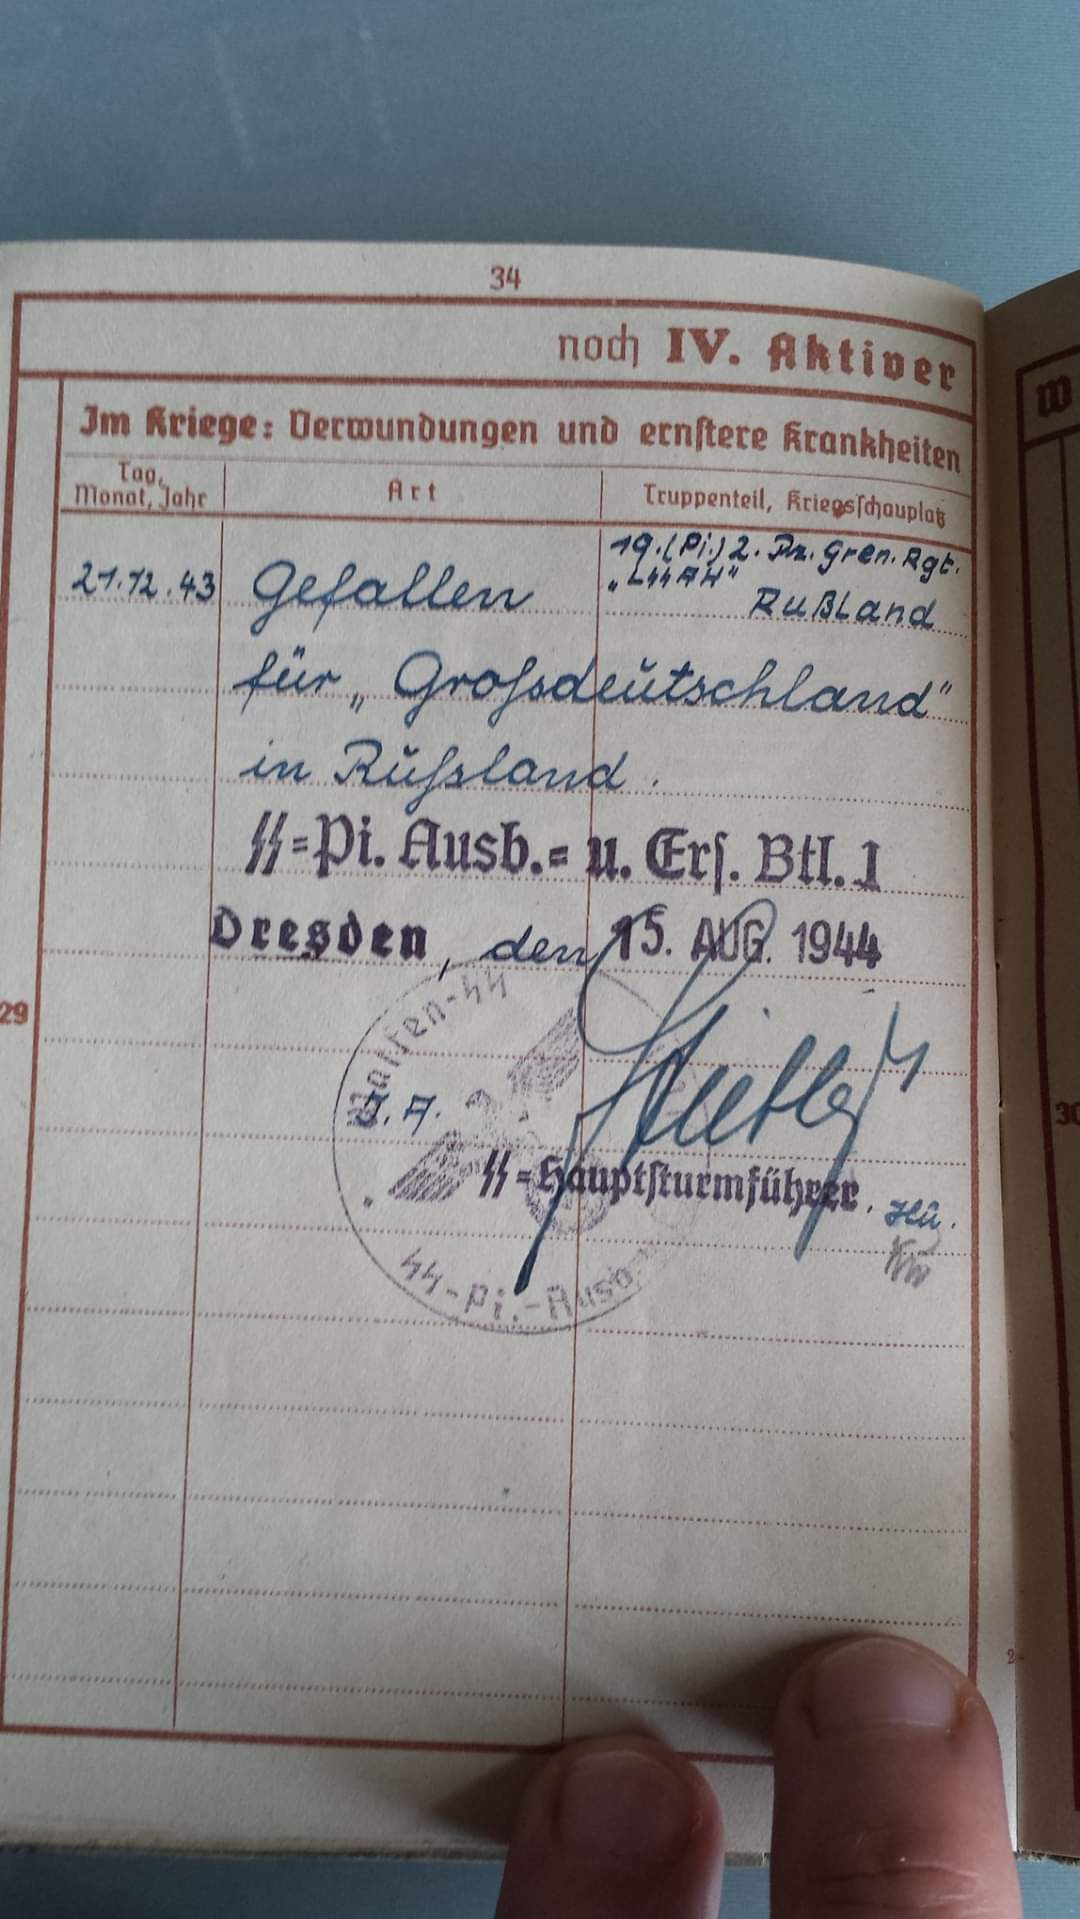 34
noch IV. Aktiver
Im Kriege: Verwundungen und ernstere Krankheiten
Tag,
Monat, Jahr
Art
Truppenteil, Kriegsschauplatz
21.12.43
Gefallen
19.(Pi.) 2. Pz. Gren. Rgt.
„LSSAH"
Rußland
für „Großdeutschland"
in Rußland.
SS=Pi. Ausb.= u. Ers. Btl. 1
Dresden, den 15. AUG. 1944
Waffen-SS
29
J. A.
SS=Hauptsturmführer.
SS-Pi.-Ausb
W
30
2